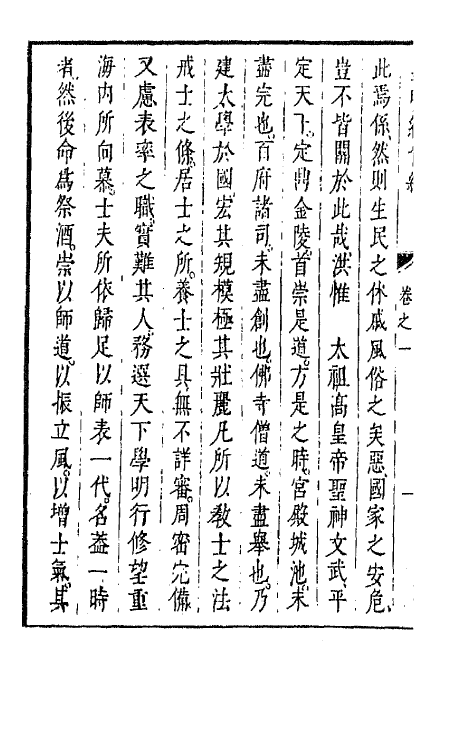 卷之一
此焉係然則生民之休戚風俗之美惡國家之安危
豈不皆關於此哉洪惟　太祖高皇帝聖神文武平
定天下定鼎金陵首崇是道方是之時宮殿城池未
盡完也百府諸司未盡創也佛寺僧道未盡舉也乃
建太學於國宏其規模極其壯麗凡所以教士之法
戒士之條居士之所養士之具無不詳審周密完備
又慮表率之職實難其人務選天下學明行修望重
海內所向慕士夫所依歸足以師表一代名蓋一時
者然後命爲祭酒崇以師道以振立風以增士氣其